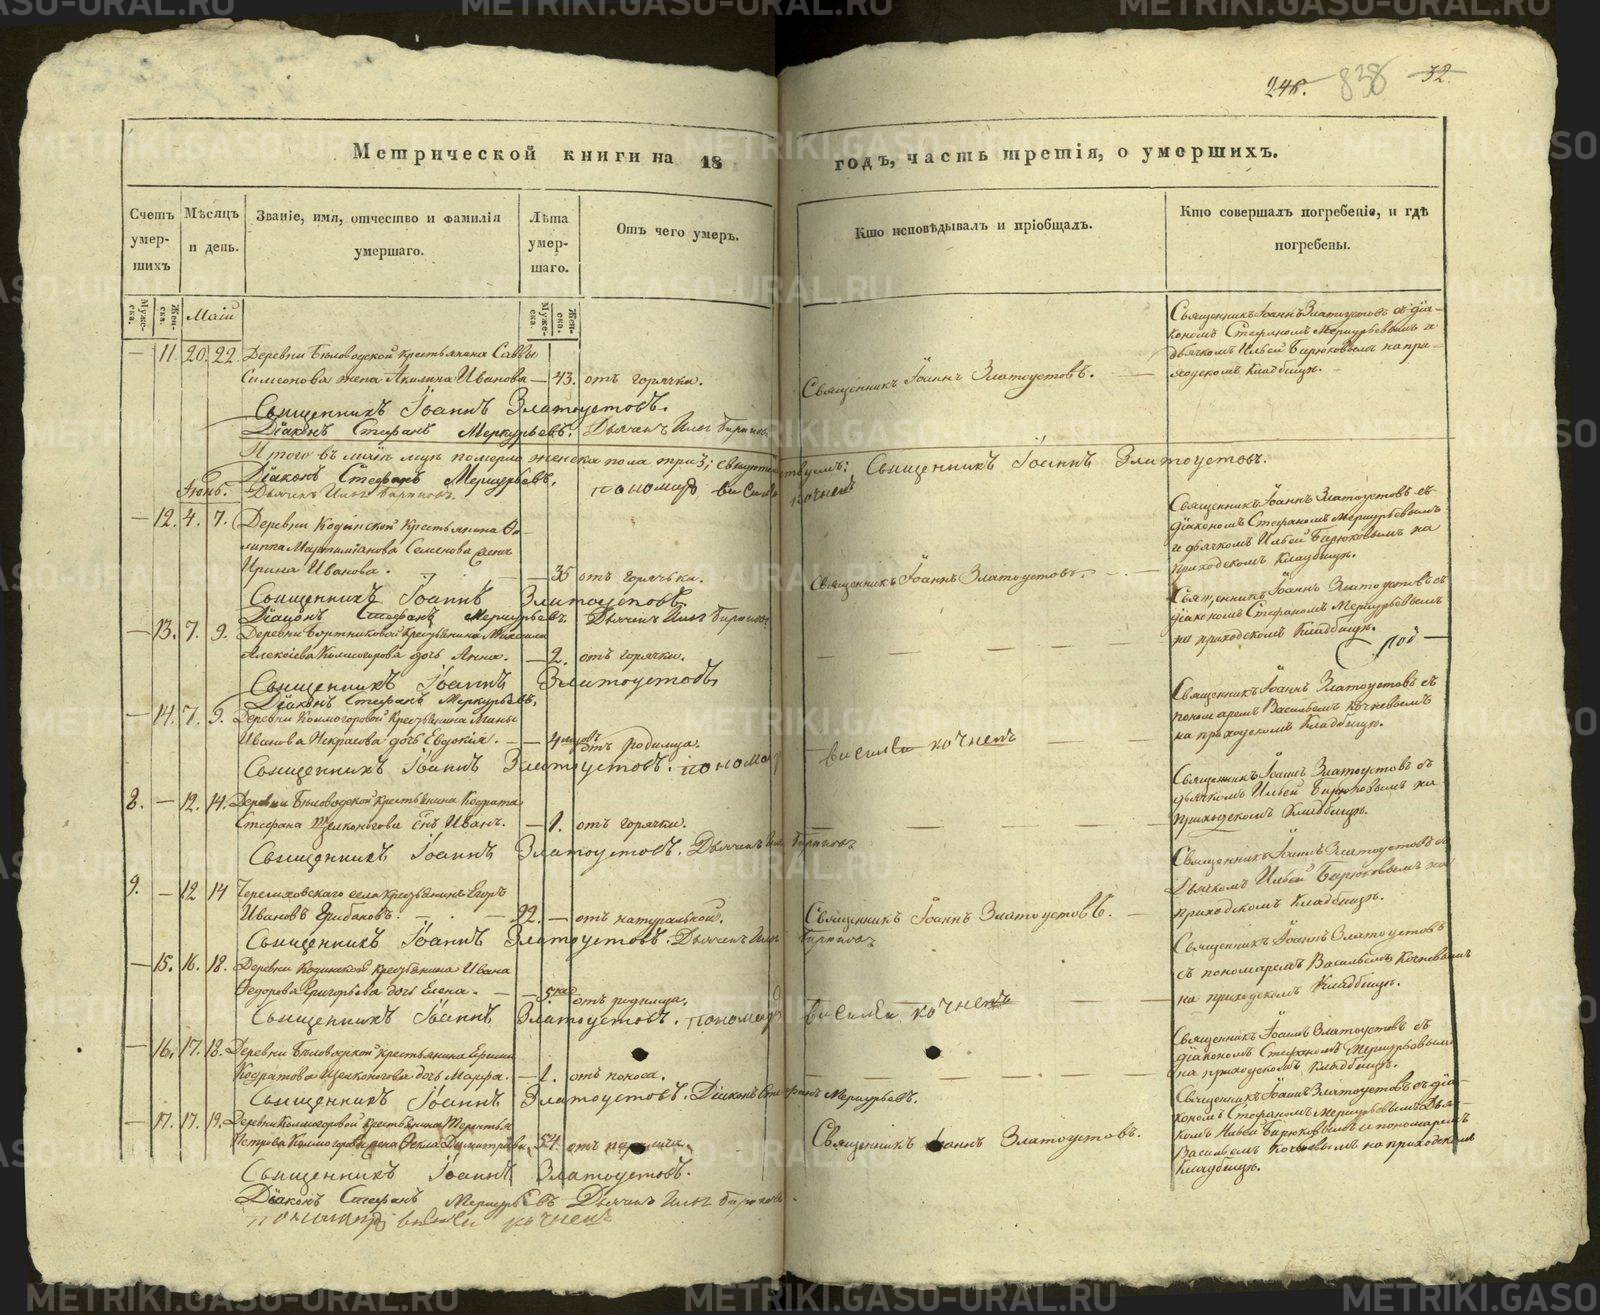 24к. 838 32.
Метрической книги на 18 годъ, часть третія, о умершихъ.
Счетъ умер-шихъ
Мѣсяцъ и день.
Званіе, имя, отчество и фамилія умершаго.
Лѣта умер-шаго.
Отъ чего умеръ.
Кто исповѣдывалъ и пріобщалъ.
Кто совершалъ погребеніе, и гдѣ погребены.
Муже-ска. Жен-ска. Маій Муже-ска. Жен-ска.
Священникъ Іоаннъ Златоустовъ съ діа-
кономъ Стефаномъ Меркурьевымъ и
дьячкомъ Ильей Бирюковымъ на при-
ходскомъ кладбищѣ.
— 11. 20. 22. Деревни Бѣловодской крестьянина Саввы
Симеонова жена Акилина Иванова — 43. отъ горячки. Священникъ Іоаннъ Златоустовъ. —
Священникъ Іоаннъ Златоустовъ.
Діаконъ Стефанъ Меркурьевъ. Дьячекъ Илья Бирюковъ
Итого въ маіѣ померло женска пола три; Священникъ Іоаннъ Златоустовъ.
Діаконъ Стефанъ Меркурьевъ. пономар Василей кочнев
Іюнь. Дьячекъ Илья Бирюковъ.
— 12. 4. 7. Деревни Кодинской Крестьянина Фи-
липпа Мартиміанова Семенова жена
Ирина Иванова. — 35 отъ горячьки. Священникъ Іоаннъ Златоустовъ. —
Священникъ Іоаннъ Златоустовъ съ
діакономъ Стефаномъ Меркурьевымъ
и дьячкомъ Ильей Бирюковымъ на
приходскомъ кладбищѣ.
Священникъ Іоаннъ Златоустовъ.
Діаконъ Стефанъ Меркурьевъ. Дьячекъ Илья Бирюковъ
— 13. 7. 9. Деревни Бортниковой крестьянина Михаила
Алексіева Колмогорова дочь Анна. — 2. отъ горячки.
Священникъ Іоаннъ Златоустовъ съ
діакономъ Стефаномъ Меркурьевымъ
на приходскомъ кладбищѣ.
Священникъ Іоаннъ Златоустовъ
Діаконъ Стефанъ Меркурьевъ.
— 14. 7. 9. Деревни Колмогоровой крестьянина Мины
Иванова Некрасова дочь Евдокія. — 4 отъ родимца.
Священникъ Іоаннъ Златоустовъ съ
пономаремъ Васильемъ Кочневымъ
на приходскомъ кладбищѣ.
Священникъ Іоаннъ Златоустовъ. пономар василеи кочневъ
8. — 12. 14. Деревни Бѣловодской крестьянина Кодрата
Стефана Щелконогова сынъ Иванъ. — 1. отъ горячки.
Священникъ Іоаннъ Златоустовъ съ
дьячкомъ Ильей Бирюковымъ на
приходскомъ кладбищѣ.
Священникъ Іоаннъ Златоустовъ. Дьячекъ Илья Бирюковъ
9. — 12 14 Черемховскаго села крестьянинъ Егоръ
Ивановъ Грибановъ. — 92. — отъ натуральной. Священникъ Іоаннъ Златоустовъ. —
Священникъ Іоаннъ Златоустовъ съ
Дьячкомъ Ильей Бирюковымъ на
приходскомъ кладбищѣ.
Священникъ Іоаннъ Златоустовъ. Дьячекъ Илья Бирюковъ
— 15. 16. 18. Деревни Кодинской крестьянина Ивана
Федорова Григорьева дочь Елена. — 5 отъ родимца.
Священникъ Іоаннъ Златоустовъ
съ пономаремъ Васильемъ Кочневымъ
на приходскомъ кладбищѣ.
Священникъ Іоаннъ Златоустовъ. пономар василеи кочневъ
— 16. 17. 18. Деревни Бѣловодской крестьянина
Кодратова Щелконогова дочь Марфа. — 1. отъ поноса.
Священникъ Іоаннъ Златоустовъ съ
діакономъ Стефаномъ Меркурьевымъ
на приходскомъ кладбищѣ.
Священникъ Іоаннъ Златоустовъ. Діаконъ Стефанъ Меркурьевъ.
— 17. 17. 19. Деревни Колмогоровой крестьянина Терентья
Петрова Колмогорова жена Фекла Димитріева. 54. отъ Священникъ Іоаннъ Златоустовъ.
Священникъ Іоаннъ Златоустовъ съ діа-
кономъ Стефаномъ Меркурьевымъ Дья-
комъ Ильей Бирюковымъ и пономаремъ
Васильемъ Кочневымъ на приходскомъ
кладбищѣ.
Священникъ Іоаннъ Златоустовъ.
Діаконъ Стефанъ Меркурьевъ Дьячекъ Илья Бирюковъ.
пономар василеи кочневъ
METRIKI.GASO-URAL.RU